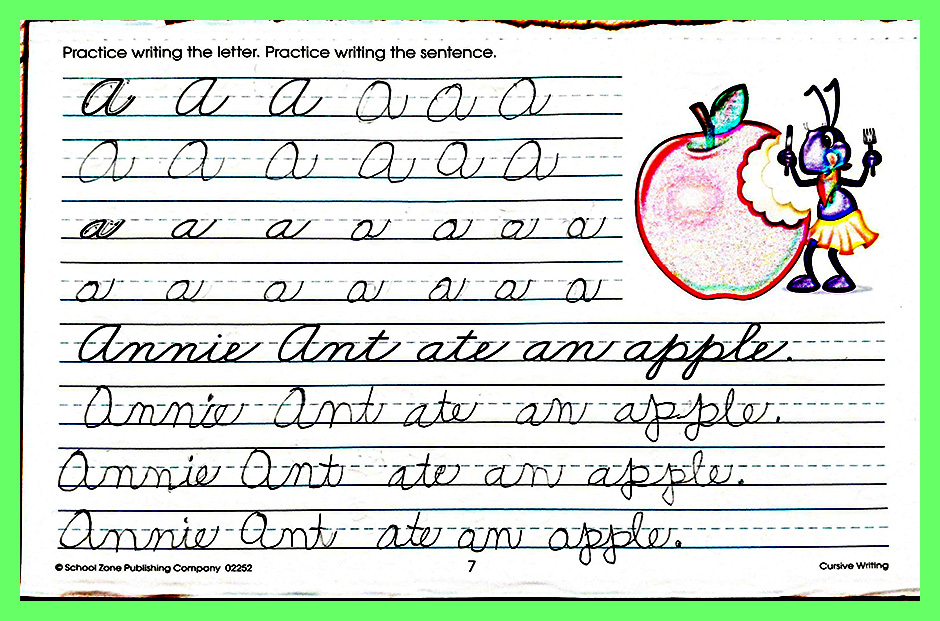 Practice writing the letter. Practice writing the sentence.
a a a a a a
a a a a a a
a a a a a a a
a a a a a a a
Annie Ant ate an apple.
Annie Ant ate an apple.
Annie Ant ate an apple.
Annie Ant ate an apple.
© School Zone Publishing Company 02252 7 Cursive Writing